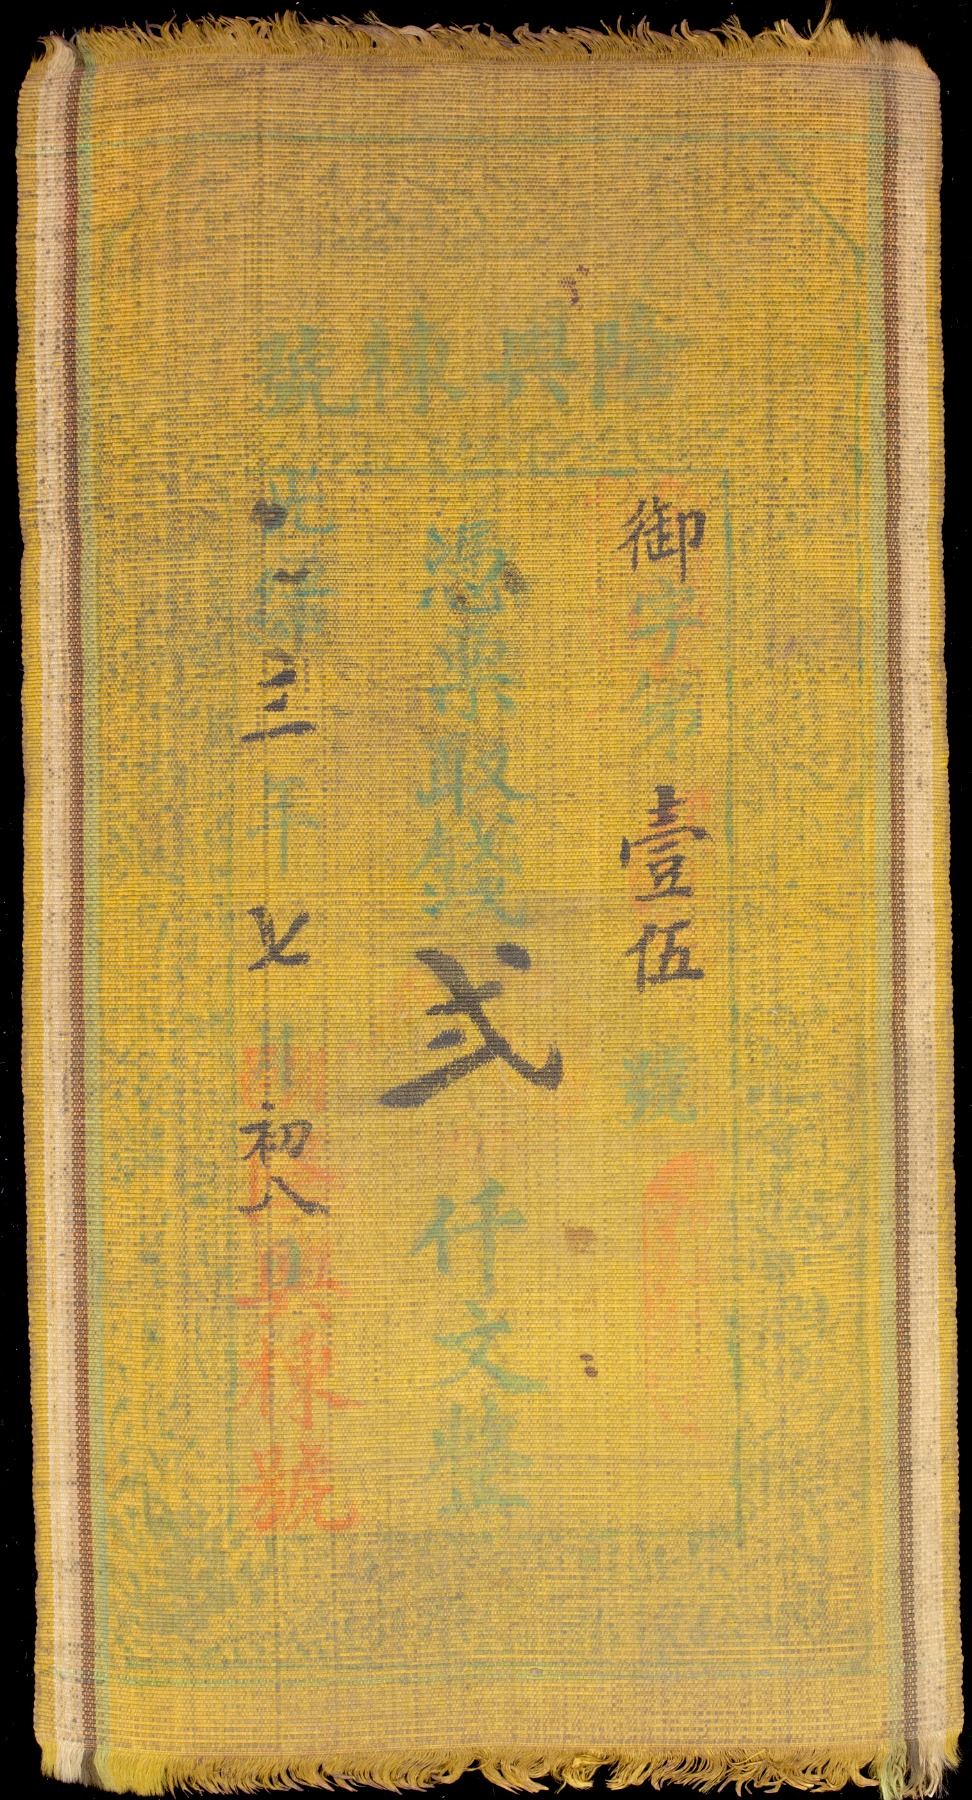 隆興棟號
御字第壹伍號
憑票取錢貳仟文整
光緒三年七月初八
興棟號